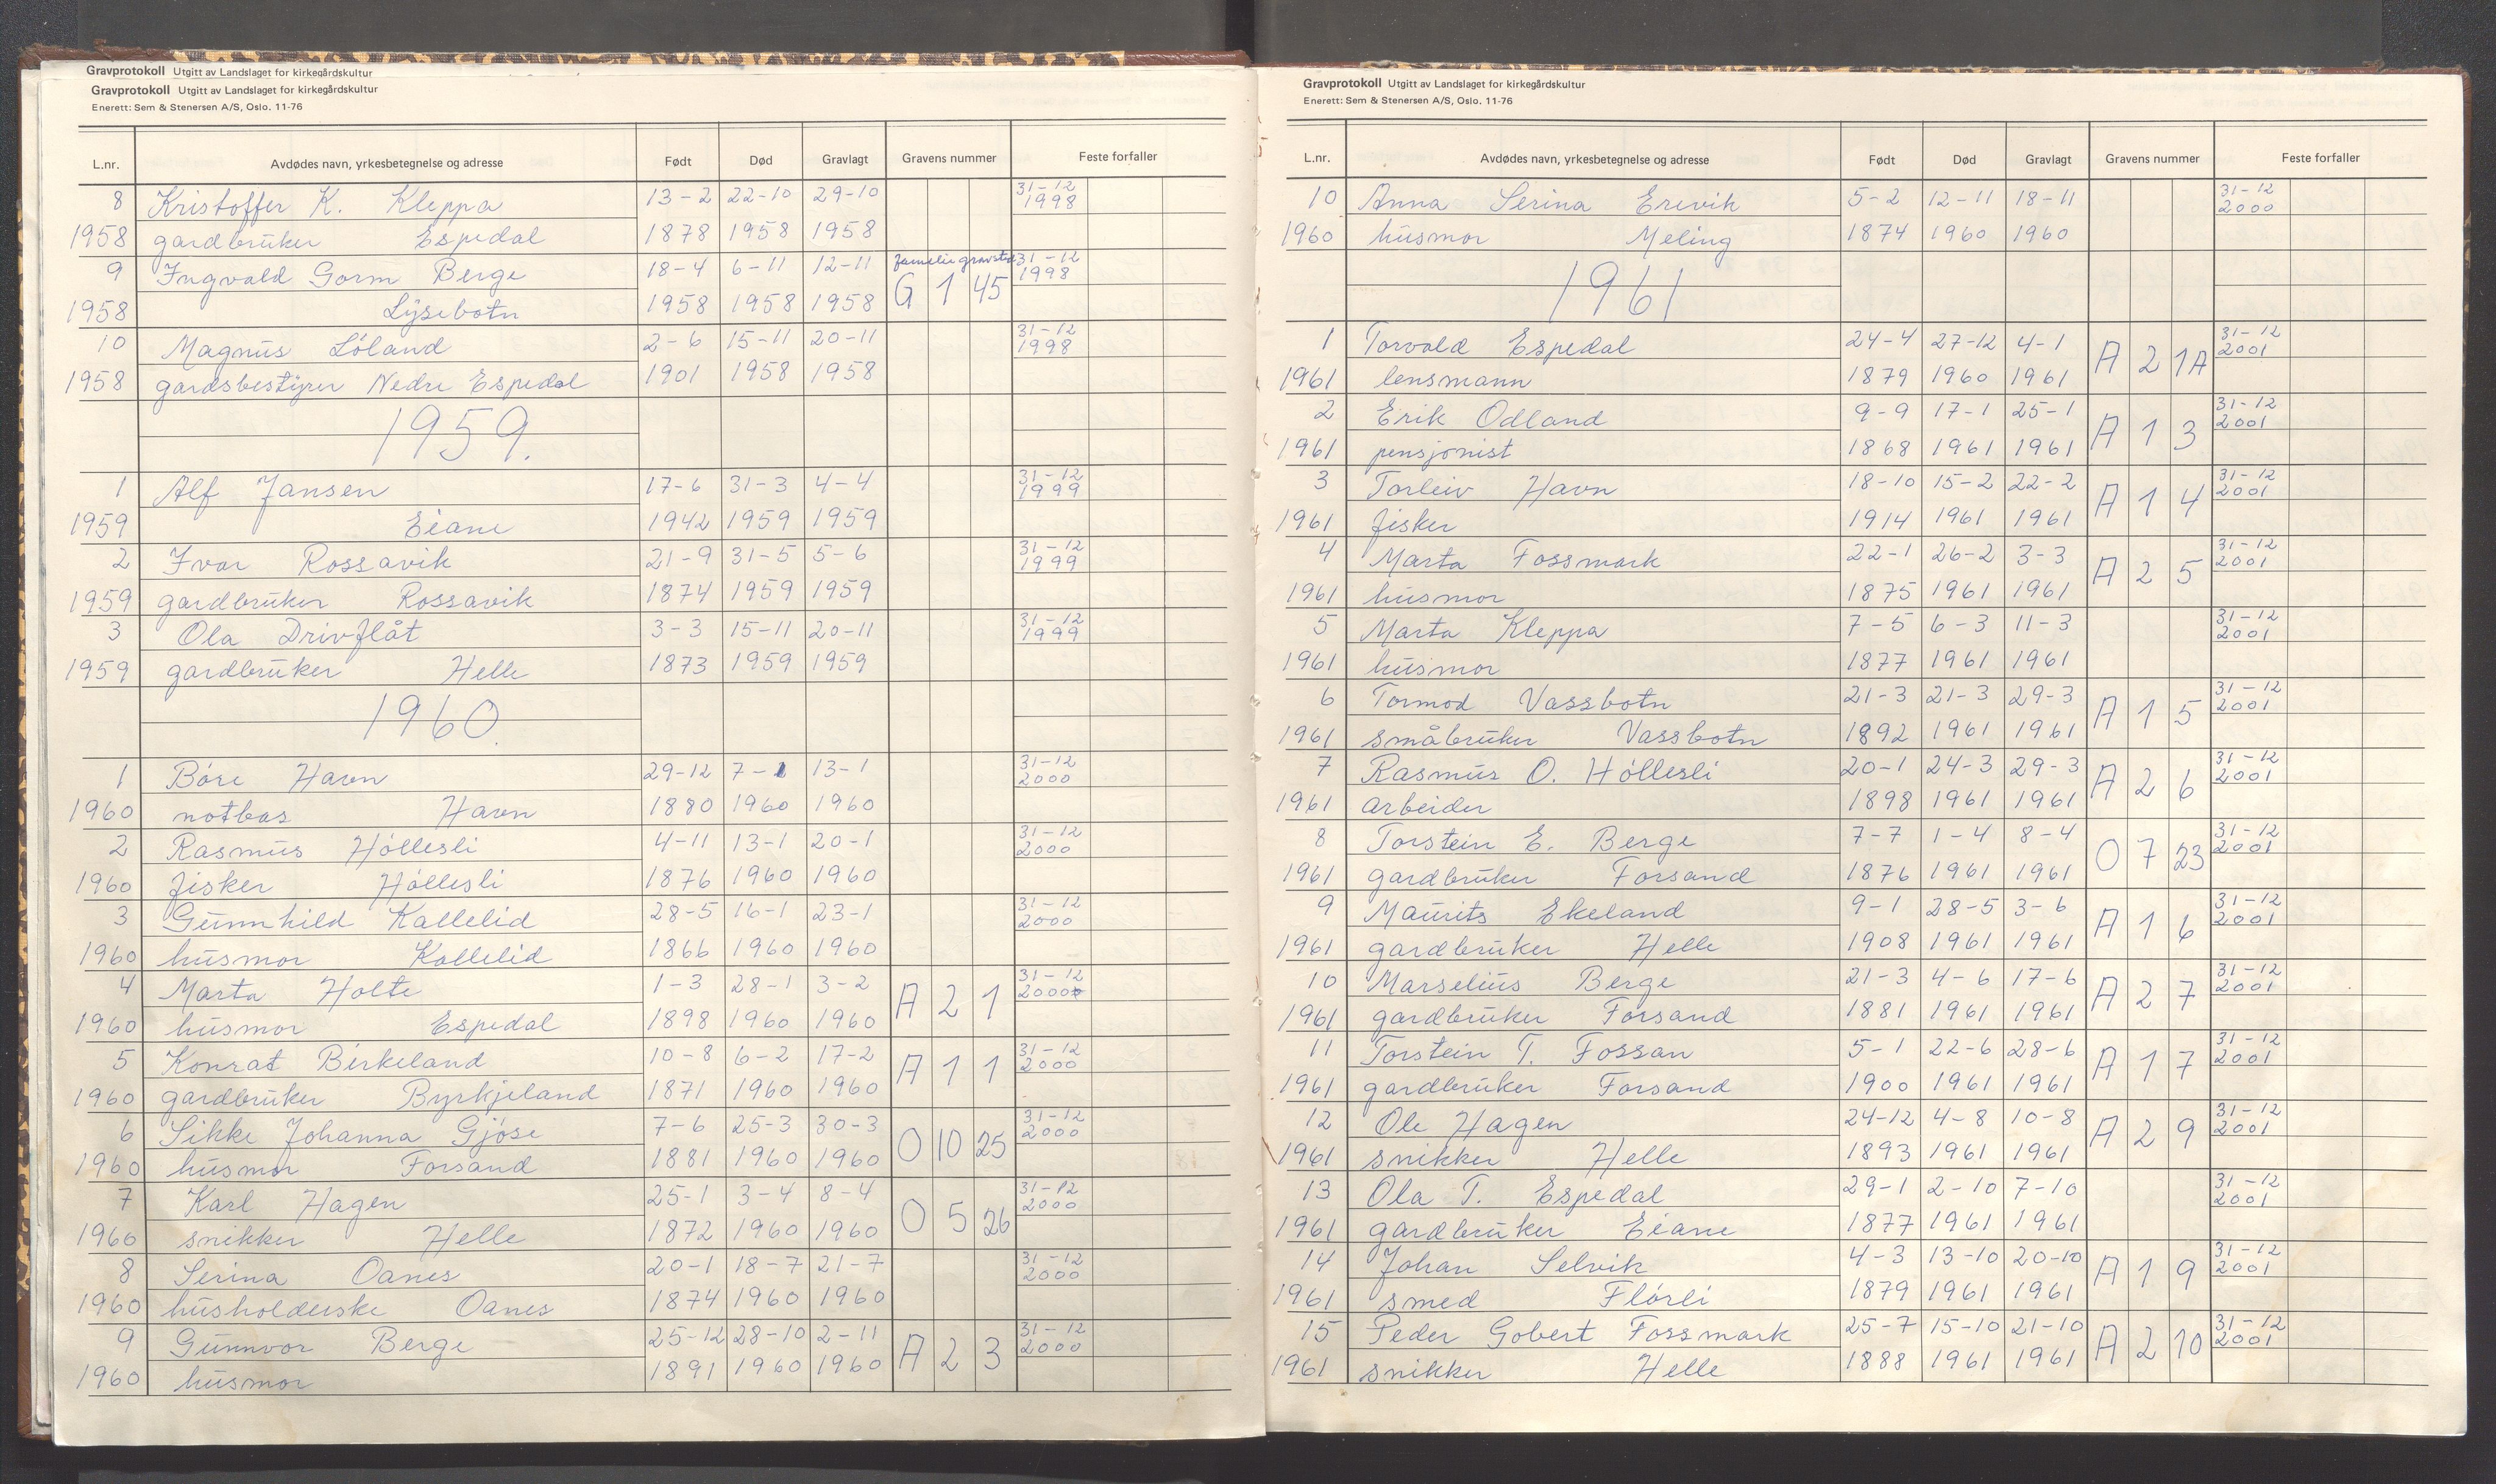 Gravprotokoll Utgitt av Landslaget for kirkegårdskultur
Gravprotokoll Utgitt av Landslaget for kirkegårdskultur
Enerett: Sem & Stenersen A/S, Oslo. 11-76
L.nr. Avdødes navn, yrkesbetegnelse og adresse Født Død Gravlagt Gravens nummer Feste forfaller
8 Kristoffer K. Kleppa 13-2 22-10 29-10 31-12 1998
1958 gardbruker Espedal 1878 1958 1958
9 Ingvald Gorm Berge 18-4 6-11 12-11 familie gravsted 31-12 1998
1958 Lysebotn 1958 1958 1958 G 1 45
10 Magnus Lóland 2-6 15-11 20-11 31-12 1998
1958 gardsbestyrer Nedre Espedal 1901 1958 1958
1959.
1 Alf Jansen 17-6 31-3 4-4 31-12 1999
1959 Eiane 1942 1959 1959
2 Ivar Rossavik 21-9 31-5 5-6 31-12 1999
1959 gardbruker Rossavik 1874 1959 1959
3 Ola Drivflåt 3-3 15-11 20-11 31-12 1999
1959 gardbruker Helle 1873 1959 1959
1960.
1 Bóre Havn 29-12 7-1 13-1 31-12 2000
1960 notbas Havn 1880 1960 1960
2 Rasmus Hóllesli 4-11 13-1 20-1 31-12 2000
1960 fisker Hóllesli 1876 1960 1960
3 Gunnhild Kallelid 28-5 16-1 23-1 31-12 2000
1960 husmor Kallelid 1866 1960 1960
4 Marta Holte 1-3 28-1 3-2 A 2 1 31-12 2000
1960 husmor Espedal 1898 1960 1960
5 Konrat Birkeland 10-8 6-2 17-2 A 1 1 31-12 2000
1960 gardbruker Byrkjeland 1871 1960 1960
6 Sikke Johanna Gjóse 7-6 25-3 30-3 O 10 25 31-12 2000
1960 husmor Forsand 1881 1960 1960
7 Karl Hagen 25-1 3-4 8-4 O 5 26 31-12 2000
1960 snikker Helle 1872 1960 1960
8 Serina Oanes 20-1 18-7 21-7 31-12 2000
1960 husholderske Oanes 1874 1960 1960
9 Gunnvor Berge 25-12 28-10 2-11 A 2 3 31-12 2000
1960 husmor 1891 1960 1960
Gravprotokoll Utgitt av Landslaget for kirkegårdskultur
Enerett: Sem & Stenersen A/S, Oslo. 11-76
L.nr. Avdødes navn, yrkesbetegnelse og adresse Født Død Gravlagt Gravens nummer Feste forfaller
10 Anna Serina Erevik 5-2 12-11 18-11 31-12 2000
1960 husmor Meling 1874 1960 1960
1961
1 Torvald Espedal 24-4 27-12 4-1 A 2 1A 31-12 2001
1961 lensmann 1879 1960 1961
2 Erik Odland 9-9 17-1 25-1 A 1 3 31-12 2001
1961 pensjonist 1868 1961 1961
3 Torleiv Havn 18-10 15-2 22-2 A 1 4 31-12 2001
1961 fisker 1914 1961 1961
4 Marta Fossmark 22-1 26-2 3-3 A 2 5 31-12 2001
1961 husmor 1875 1961 1961
5 Marta Kleppa 7-5 6-3 11-3 31-12 2001
1961 husmor 1877 1961 1961
6 Tormod Vassbotn 21-3 21-3 29-3 A 1 5 31-12 2001
1961 småbruker Vassbotn 1892 1961 1961
7 Rasmus O. Hóllesli 20-1 24-3 29-3 A 2 6 31-12 2001
1961 arbeider 1898 1961 1961
8 Torstein E. Berge 7-7 1-4 8-4 O 7 23 31-12 2001
1961 gardbruker Forsand 1876 1961 1961
9 Maurits Ekeland 9-1 28-5 3-6 A 1 6 31-12 2001
1961 gardbruker Helle 1908 1961 1961
10 Marselius Berge 21-3 4-6 17-6 A 2 7 31-12 2001
1961 gardbruker Forsand 1881 1961 1961
11 Torstein T. Fossan 5-1 22-6 28-6 A 1 7 31-12 2001
1961 gardbruker Forsand 1900 1961 1961
12 Ole Hagen 24-12 4-8 10-8 A 2 9 31-12 2001
1961 snikker Helle 1893 1961 1961
13 Ola T. Espedal 29-1 2-10 7-10 31-12 2001
1961 gardbruker Eiane 1877 1961 1961
14 Johan Selvik 4-3 13-10 20-10 A 1 9 31-12 2001
1961 smed Flórli 1879 1961 1961
15 Peder Gobert Fossmark 25-7 15-10 21-10 A 2 10 31-12 2001
1961 snikker Helle 1888 1961 1961